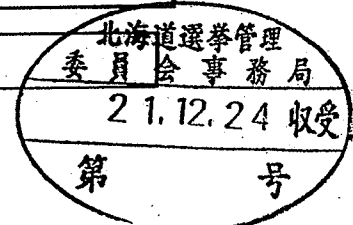 北海道選挙管理
委員会事務局
21.12.24 収受
第 号